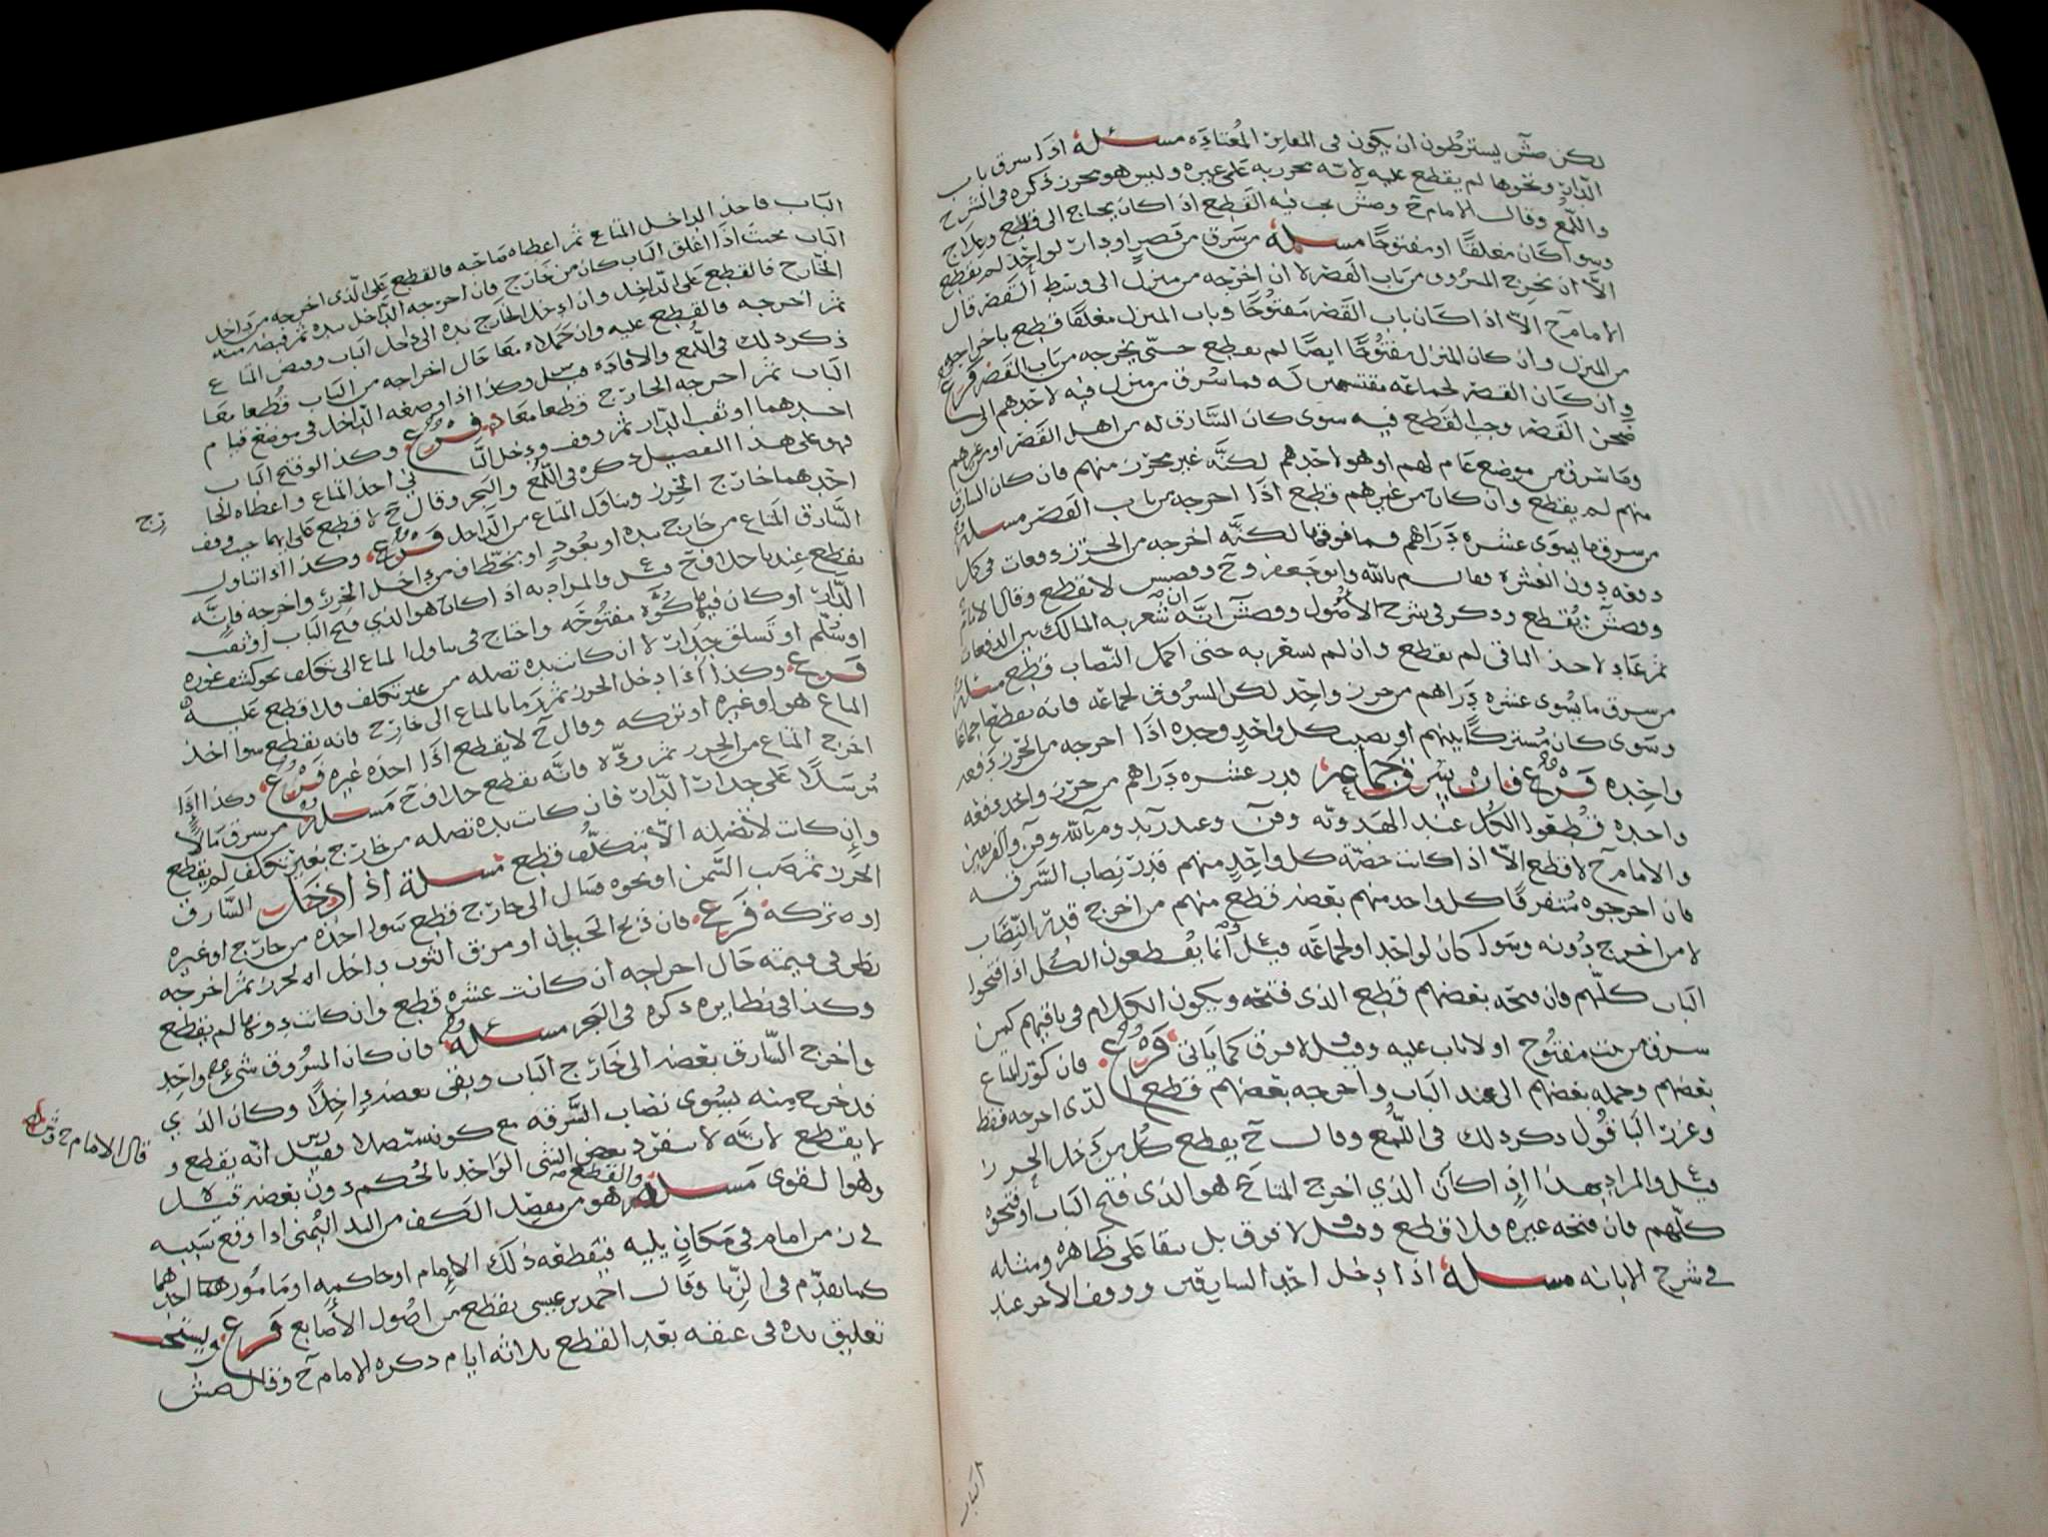 لكن صش يشترطون ان يكون في المقابر المعتاده مسئلة اذا سرق باب
الدار ونحوها لم يقطع عليه لانه محرز به على غيره وليس هو محرز ذكره في الشرح
واللمع وقال الامام ح وصش يجب فيه القطع اذ اكان يحتاج الى قلع وعلاج
وسوا كان مغلقا او مفتوحا مسئلة من سرق من قصر او دار لواحد لم يقطع
الا ان يخرج المسروق من باب القصر لا ان اخرجه من منزل الى وسط القصر قال
الامام ح الا اذا كان باب القصر مفتوحا وباب المنزل مغلقا قطع باخراجه
من المنزل وان كان المنزل مفتوحا ايضا لم يقطع حتى يخرجه من باب القصر فرع
وان كان القصر لجماعه مقتسمين له فما سرق من منزل فيه لاحدهم الى
صحن القصر وجب القطع فيه سوى كان السارق له من اهل القصر او غيرهم
وما سرق من موضع عام لهم او هو لاحدهم لكنه غير محرز منهم فان كان السارق
منهم لم يقطع وان كان من غيرهم قطع اذا اخرجه من باب القصر مسئلة
من سرق ما يسوى عشره دراهم فما فوقها لكنه اخرجه من الحرز دفعات في كل
دفعه دون العشره فقال م بالله وابو جعفر وح وقصش لا يقطع وقال الامام
وقصش يقطع وذكر في شرح الاصول وقصش انه ان شعر به المالك بين الدفعات
ثم عاد لاخذ الباقي لم يقطع وان لم يشعر به حتى اكمل النصاب قطع مسئلة
من سرق ما يسوى عشره دراهم من حرز واحد لكن المسروق لجماعه فانه يقطع اجماعا
وسوى كان مشتركا بينهم او نصيب كل واحد وحده اذا اخرجه من الحرز دفعه
واحده فرع فان سرق جماعة قدر عشره دراهم من حرز واحد دفعه
واحده قطعوا الكل عند الهدويه وعند زيد وم بالله والفريقين
والامام ح لا قطع الا اذا كانت حصة كل واحد منهم قدر نصاب السرقه
فان اخرجوه متفرقا كل واحد منهم بعضه قطع منهم من اخرج قدر النصاب
لا من اخرج دونه وسوى كان لواحد او لجماعه قيل وانما يقطعون الكل اذا فتحوا
الباب كلهم وان فتحه بعضهم قطع الذي فتحه ويكون الكلام في باقيهم كمن
سرق من بيت مفتوح او لا باب عليه وقيل لا فرق كما ياتي فرع فان كور المتاع
بعضهم وحمله بعضهم الى عند الباب واخرجه بعضهم قطع الذي اخرجه فقط
وعزر الباقون ذكر ذلك في اللمع وقال ح يقطع كل من دخل الحرز
قيل والمراد بهذا اذا كان الذي اخرج المتاع هو الذي فتح الباب او فتحوه
كلهم فان فتحه غيره فلا قطع وقيل لا فرق بل يبقا على ظاهره ومثله
في شرح الابانه مسئلة اذا دخل احد السارقين ووقف الاخر عند
الباب
الباب فاخذ الداخل المتاع ثم اعطاه صاحبه فالقطع على الذي اخرجه من داخل
الباب بحيث اذا اغلق الباب كان من خارج فان اخرجه الداخل بيده ثم قبضه منه
الخارج فالقطع على الداخل وان ادخل الخارج يده الى داخل الباب وقبض المتاع
ثم اخرجه فالقطع عليه وان حملاه معا حال اخراجه من الباب قطعا معا
ذكر ذلك في اللمع والافاده قيل وكذا اذا وضعه الداخل في موضع قيام
الباب ثم اخرجه الخارج قطعا معا فرع وكذا لو فتح الباب
احدهما او نقب الدار ثم وقف ودخل الثاني اخذ المتاع واعطاه
فهو على هذا التفصيل ذكره في اللمع والبحر وقال ح لا قطع على ايهما حيث وقف
احدهما خارج الحرز وتناول المتاع من الداخل فرع وكذا اذا تناول
السارق المتاع من خارج بيده او بعود او بخطاف من داخل الحرز واخرجه فانه
يقطع عندنا خلاف ح قيل والمراد به اذا كان هو الذي فتح الباب او نقب
الدار او كان فيها كوة مفتوحه واحتاج في تناول المتاع الى تكلف نحو كشف غوره
او سلم او تسلق جدار لا ان كانت يده تصله من غير تكلف فلا قطع عليه
فرع وكذا اذا دخل الحرز ثم رما بالمتاع الى خارج فانه يقطع سوا اخذ
المتاع هو او غيره او تركه وقال ح لا يقطع اذا اخذه غيره فرع وكذا اذا
اخرج المتاع من الحرز ثم رده فانه يقطع خلاف ح مسئلة من سرق مالا
مرسلا على جدار الدار فان كانت يده تصله من خارج بغير تكلف لم يقطع
وان كانت لا تصله الا بتكلف قطع مسئلة اذا ادخل السارق
الحرز ثم صب السمن او نحوه فسال الى خارج قطع سوا اخذه من خارج او غيره
او تركه فرع فان ذبح الحيوان او مزق الثوب داخل الحرز ثم اخرجه
نظر في قيمته حال اخراجه ان كانت عشره قطع وان كانت دونها لم يقطع
وكذا في نظايره ذكره في البحر مسئلة فان كان المسروق شي واحد
واخرج السارق بعضه الى خارج الباب وبقي بعضه داخلا وكان الذي
قد خرج منه يسوى نصاب السرقه مع كونه متصلا فقيل انه يقطع و
لا يقطع لانه لا ينفرد بعض الشي الواحد بالحكم دون بعضه قيل
وهو القوى مسئلة والقطع هو من مفصل الكف من اليد اليمنى اذا وقع سببه
في زمن امام في مكان يليه فيقطعه ذلك الامام او حاكمه او مامور احدهما
كما تقدم في الزنا وقال احمد بن عيسى يقطع من اصول الاصابع فرع ويستحب
تعليق يده في عنقه بعد القطع ثلاثه ايام ذكره الامام ح وقال صش
قال الامام ح وش